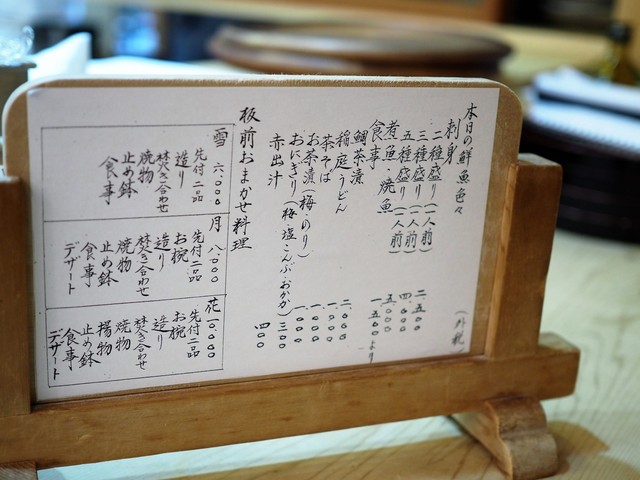 本日の鮮魚色々 (外税)
刺身
二種盛り(一人前) 二、五〇〇
三種盛り(一人前) 四、〇〇〇
五種盛り(一人前) 五、〇〇〇
煮魚・焼魚 一、五〇〇より
食事
鯛茶漬 二、〇〇〇
稲庭うどん 一、〇〇〇
茶そば 一、〇〇〇
お茶漬(梅・のり) 一、〇〇〇
おにぎり(梅 塩こんぶ おかか) 三〇〇
赤出汁 四〇〇
板前おまかせ料理
雪 六、〇〇〇
先付二品
造り
焚き合わせ
焼物
止め鉢
食事
月 八、〇〇〇
先付二品
お椀
造り
焚き合わせ
焼物
止め鉢
食事
デザート
花 一〇、〇〇〇
先付二品
お椀
造り
焚き合わせ
焼物
揚物
止め鉢
食事
デザート